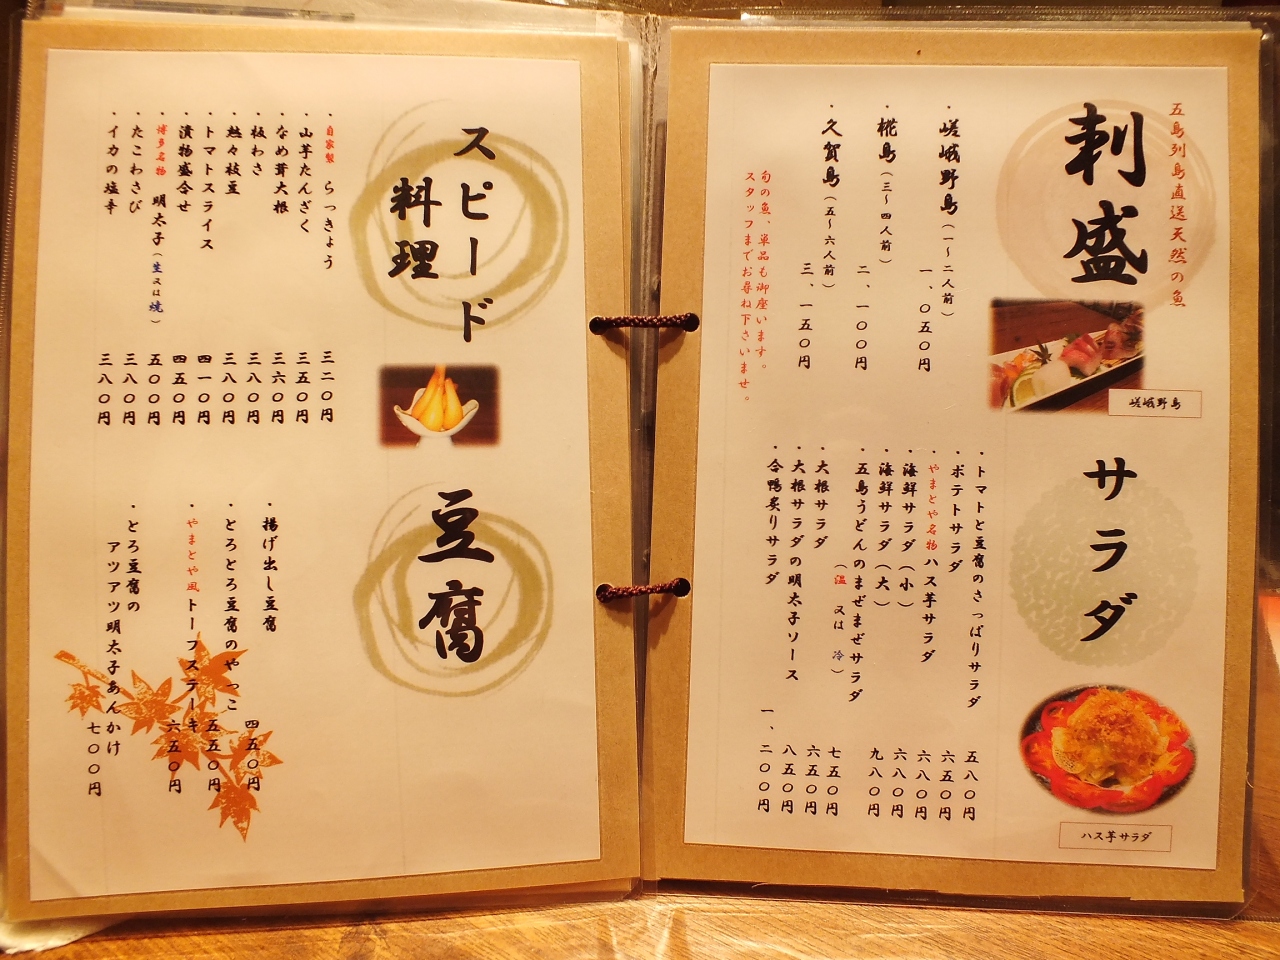 五島列島直送天然の魚
刺盛
嵯峨野島
・嵯峨野島(一～二人前)
一、〇五〇円
・椛島(三～四人前)
二、一〇〇円
・久賀島(五～六人前)
三、一五〇円
旬の魚、単品も御座います。
スタッフまでお尋ね下さいませ。
サラダ
ハス芋サラダ
・トマトと豆腐のさっぱりサラダ
五八〇円
・ポテトサラダ
六五〇円
・やまとや名物ハス芋サラダ
六八〇円
・海鮮サラダ(小)
六八〇円
・海鮮サラダ(大)
九八〇円
・五島うどんのまぜまぜサラダ
(温 又は 冷)
七五〇円
・大根サラダ
六五〇円
・大根サラダの明太子ソース
八五〇円
・合鴨炙りサラダ
一、二〇〇円
スピード
料理
・自家製 らっきょう
三二〇円
・山芋たんざく
三五〇円
・なめ茸大根
三六〇円
・板わさ
三八〇円
・熱々枝豆
三八〇円
・トマトスライス
四一〇円
・漬物盛合せ
四五〇円
・博多名物 明太子(生又は焼)
五〇〇円
・たこわさび
三八〇円
・イカの塩辛
三八〇円
豆腐
・揚げ出し豆腐
四五〇円
・とろとろ豆腐のやっこ
五五〇円
・やまとや風トーフステーキ
六五〇円
・とろ豆腐の
アツアツ明太子あんかけ
七〇〇円